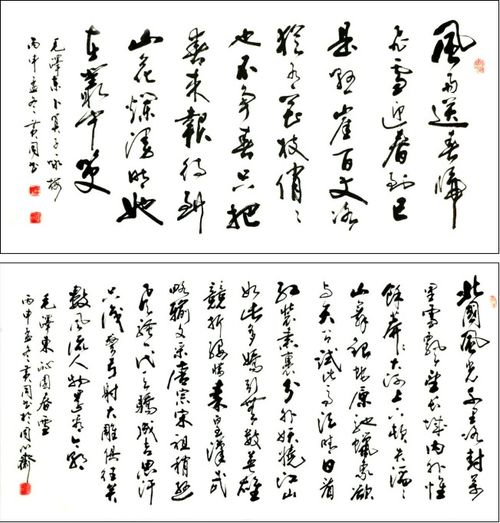 風雨送春歸
飞雪迎春到已
是懸崖百丈冰
犹有花枝俏〻
也不争春只把
春来報待到
山花爛漫時她
在叢中笑
毛澤東卜算子咏梅
丙申孟冬 书
北國風光千里冰封萬
里雪飘〻望长城内外惟
餘莽〻大河上下頓失滔〻
山舞银蛇原驰蠟象欲
与天公试比高须晴日看
红裝素裹分外妖娆江山
如此多嬌引無數英雄
競折腰惜秦皇漢武
略输文采唐宗宋祖稍遜
風骚一代天驕成吉思汗
只識弯弓射大雕俱往矣
數風流人物還看今朝
毛澤東沁园春雪
丙申孟冬 书於